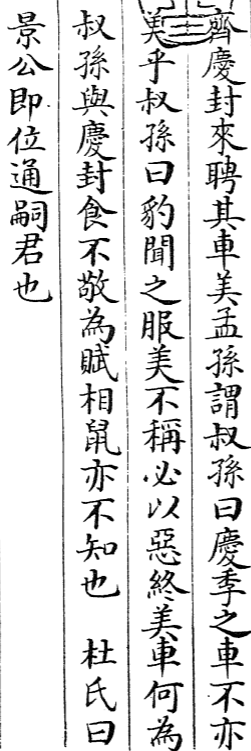 齊慶封來聘其車美孟孫謂叔孫曰慶季之車不亦
美乎叔孫曰豹聞之服美不稱必以惡終美車何為
叔孫與慶封食不敬為賦相鼠亦不知也　杜氏曰
景公即位通嗣君也